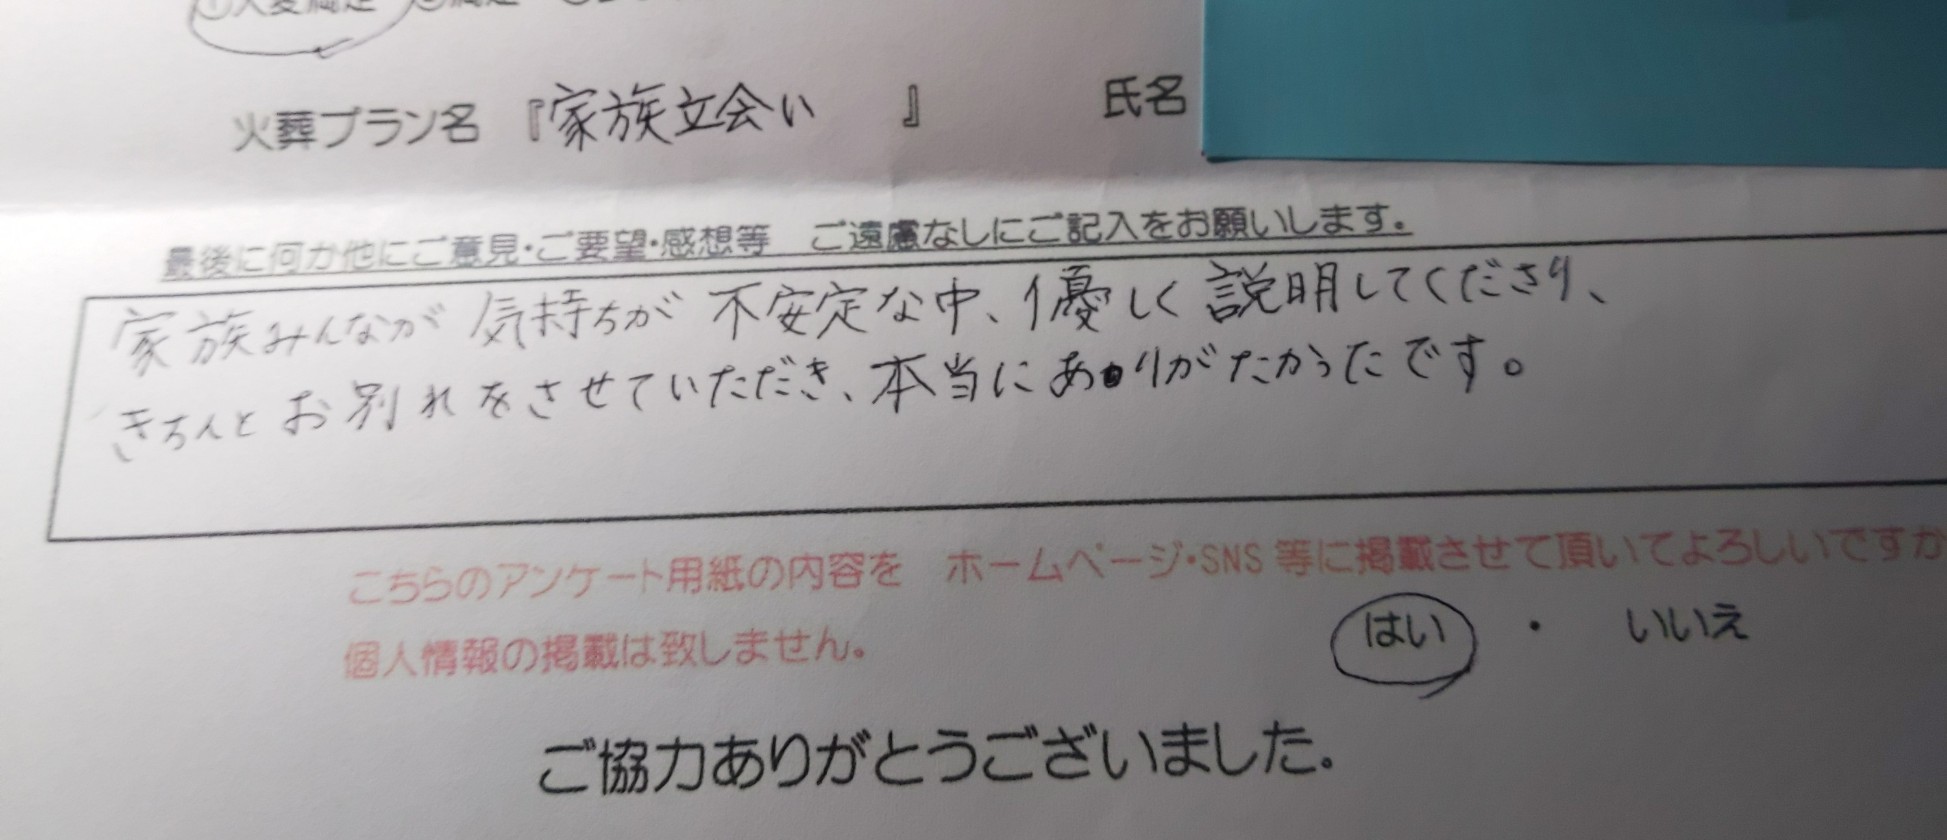 ①大変満足
火葬プラン名 『家族立会い 』 氏名
最後に何か他にご意見・ご要望・感想等 ご遠慮なしにご記入をお願いします。
家族みんなが気持ちが不安定な中、優しく説明してくださり、
きちんとお別れをさせていただき、本当にありがたかったです。
こちらのアンケート用紙の内容を ホームページ・SNS 等に掲載させて頂いてよろしいですか
個人情報の掲載は致しません。
はい ・ いいえ
ご協力ありがとうございました。